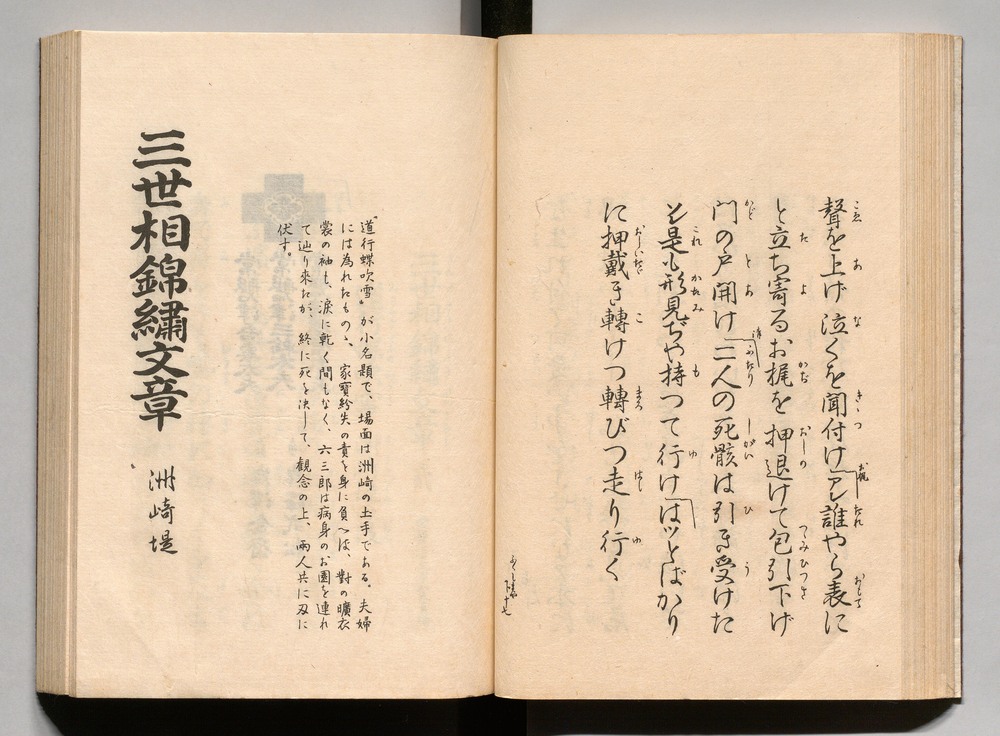 聲を上げ泣くを聞付け「アレ誰やら表に
と立ち寄るお梶を押退けて包引下げ
門の戸開け「二人の死骸は引き受けた
ぞ是も形見ぢや持つて行け「はツとばかり
に押戴き轉けつ轉びつ走り行く
三世相錦繡文章
洲崎堤
『道行蝶吹雪』が小名題で、場面は洲崎の土手である。夫婦
には為れたものゝ、家寶紛失の責を身に負へば、對の曠衣
裳の袖も、涙に乾く間もなく、六三郎は病身のお園を連れ
て辿り来たが、終に死を決して、観念の上、両人共に刃に
伏す。